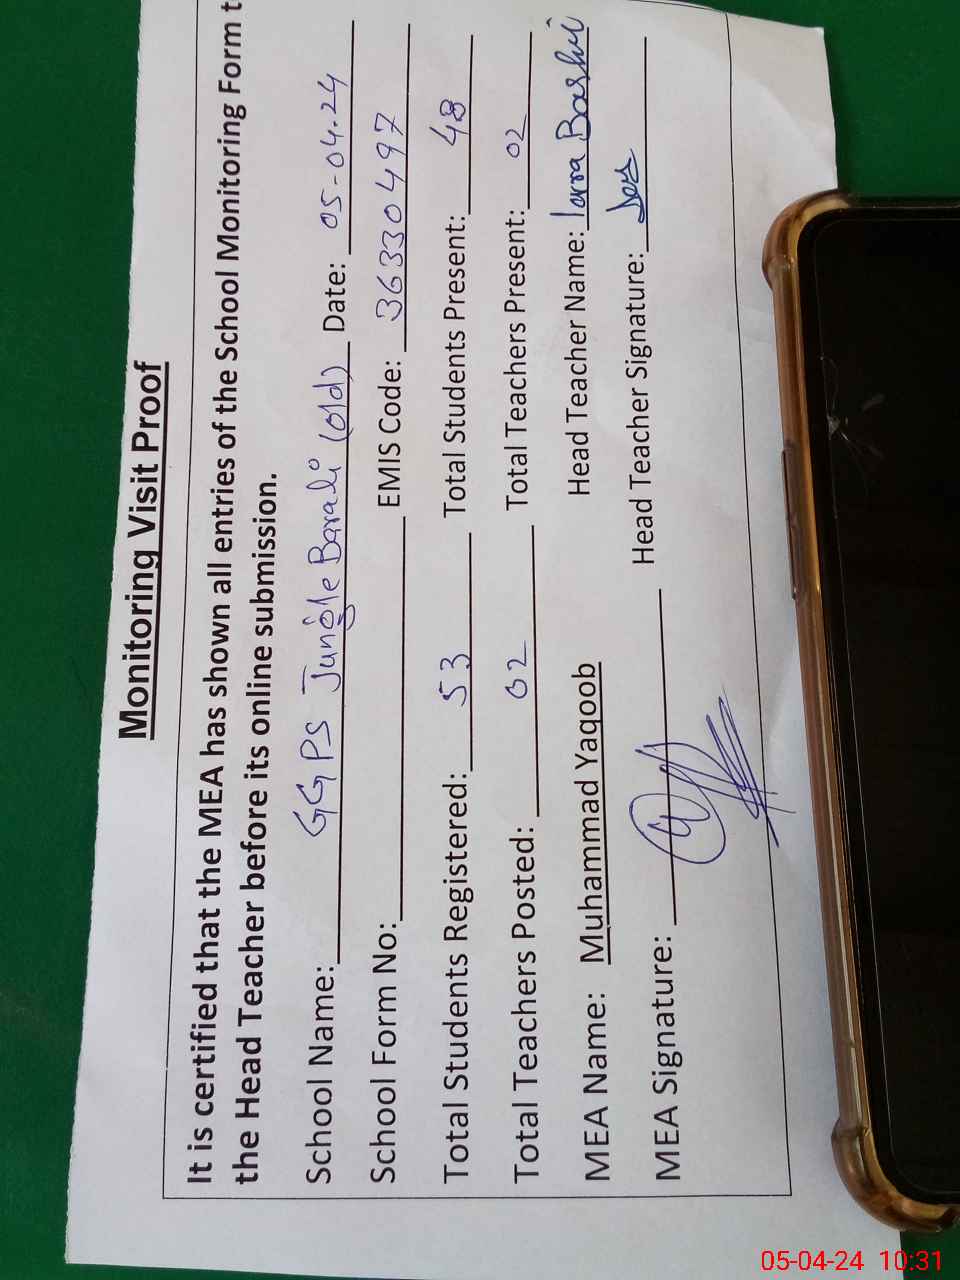 Monitoring Visit Proof
It is certified that the MEA has shown all entries of the School Monitoring Form t
the Head Teacher before its online submission.
School Name: GGPS Jungle Barali (old) Date: 05-04-24
School Form No: EMIS Code: 36330497
Total Students Registered: 53 Total Students Present: 48
Total Teachers Posted: 02 Total Teachers Present: 02
MEA Name: Muhammad Yaqoob Head Teacher Name: Bashir
MEA Signature: Head Teacher Signature:
05-04-24 10:31